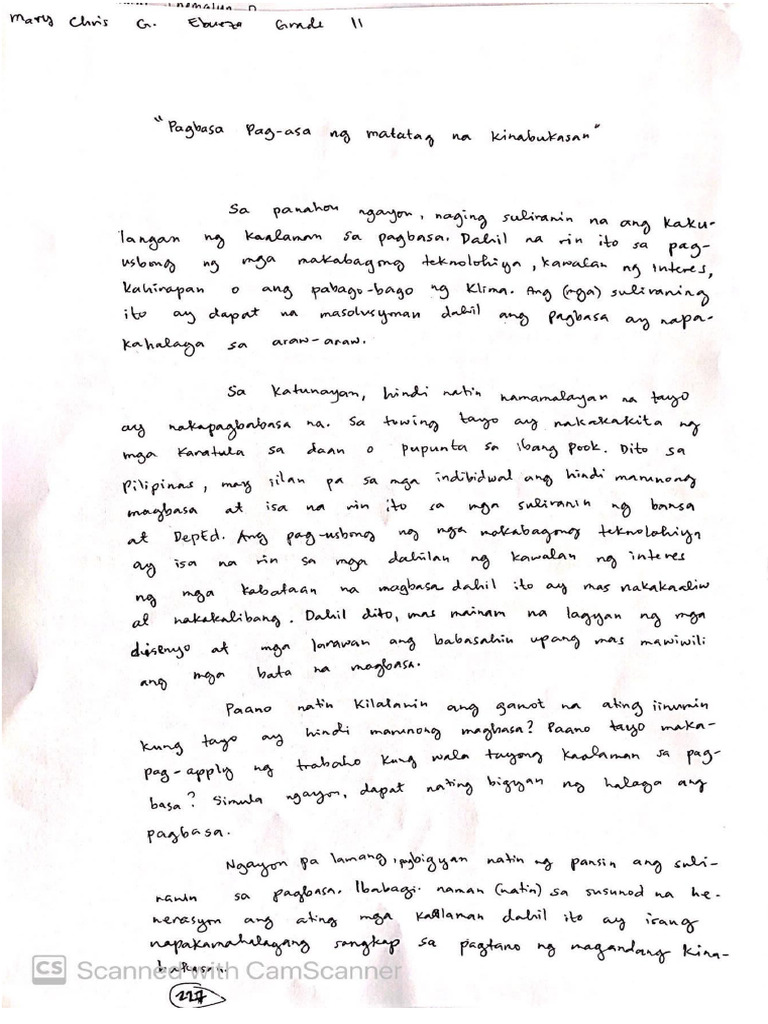 Mary Chris G. Ebueza Grade 11
"Pagbasa Pag-asa ng matatag na kinabukasan"
Sa panahon ngayon, naging suliranin na ang kaku-
langan ng kaalaman sa pagbasa. Dahil na rin ito sa pag-
usbong ng mga makabagong teknolohiya, kawalan ng interes,
kahirapan o ang pabago-bago ng klima. Ang (mga) suliraning
ito ay dapat na masolusyman dahil ang pagbasa ay napa-
kahalaga sa araw-araw.
Sa katunayan, hindi natin namamalayan na tayo
ay nakapagbabasa na. Sa tuwing tayo ay nakakakita ng
mga karatula sa daan o pupunta sa ibang pook. Dito sa
Pilipinas, may iilan pa sa mga indibidwal ang hindi marunong
magbasa at isa na rin ito sa mga suliranin ng bansa
at DepEd. Ang pag-usbong ng mga makabagong teknolohiya
ay isa na rin sa mga dahilan ng kawalan ng interes
ng mga kabataan na magbasa dahil ito ay mas nakakaaliw
at nakakalibang. Dahil dito, mas mainam na lagyan ng mga
disenyo at mga larawan ang babasahin upang mas mawiwili
ang mga bata na magbasa.
Paano natin kilalanin ang gamot na ating iinumin
kung tayo ay hindi marunong magbasa? Paano tayo maka-
pag-apply ng trabaho kung wala tayong kaalaman sa pag-
basa? Simula ngayon, dapat nating bigyan ng halaga ang
pagbasa.
Ngayon pa lamang, pagbigyan natin ng pansin ang suli-
ranin sa pagbasa. Ibabagi naman (natin) sa susunod na he-
nerasyon ang ating mga kaalaman dahil ito ay isang
napakamahalagang sangkap sa pagtano ng magandang kina-
bukasan.
CS Scanned with CamScanner
227